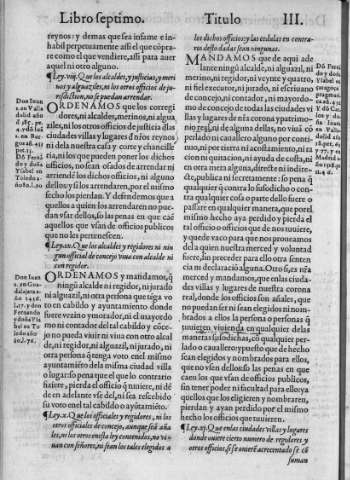 Libro septimo. Titulo III.
reynos: y demas que sea infame e in-
habil perpetuamente assi el que côpra-
re como el que vendiere, assi para auer
aquel ni otro alguno.
¶Ley.viij. Que los alcaldes, y justicias, y meri
nos y alguaziles, ni los otros oficios de ju-
risdicion, no se puedan arrendar.
ORDENAMOS que los corregi
dores, ni alcaldes, merinos, ni algua
ziles, ni los otros oficios de justicia dlas
ciudades villas y lugares d nros reynos
ni dela nuestra casa y corte y chancille
ria, ni los que pueden poner los dichos
oficios, no sean osados de arrendar ni
arrienden los dichos oficios, ni alguno
dellos: y si los arrendaren, por el mismo
fecho los pierdan. Y defendemos que a
quellos a quien los arrendaren no pue-
dan vsar dellos, so las penas en que caen
aquellos que vsan de oficios publicos
que no les pertenescen.
¶Ley.ix. Que los alcaldes y regidores ni nin
gun oficial de concejo viua con alcalde ni
con regidor.
ORDENAMOS y mandamos, q̃
ningũ alcalde ni regidor, ni jurado
ni alguazil, ni otra persona que tenga vo
to en cabildo y ayuntamiento donde
fuere vezino y morador, ni el mayordo
mo ni contador del tal cabildo y conce-
jo no pueda viuir ni viua con otro alcal
de, ni regidor, ni alguazil, ni jurado, ni
otra persona q̃ tenga voto enel mismo
ayuntamiẽto dela misma ciudad villa
o lugar: so pena que el que lo contrario
fiziere, pierda el oficio q̃ tuuiere, ni dẽ
de en adelante vse del, ni sea rescebido
su voto enel tal cabildo o ayũtamiẽto.
¶Ley.x. Que los oficiales y regidores, ni los
otros oficiales de concejo, aunque seã aña
les, ni los otros enesta ley contenidos, no vi-
uan con señores, ni sean los tales elegidos a
los dichos officios: y las cedulas en contra-
ros dello dadas sean ningunas.
MANDAMOS que de aqui ade
lante ningũ alcalde, ni alguazil, ni
merino, ni regidor, ni veynte y quatro,
ni fiel executor, ni jurado, ni escriuano
de concejo, ni contador, ni mayordo-
mo de concejo de todas las ciudades vi
llas y lugares de nr̃a corona y patrimo-
nio real, ni de alguna dellas, no viua cõ
perlado ni cauallero alguno por conti-
nuo, ni por tierra ni acostamiento, ni ra
cion ni quitacion, ni ayuda de costa, ni
en otra mera alguna, directe ni indirecte,
publica ni secretamente: so pena q̃
qualquier q̃ contra lo susodicho o con-
tra qualquier cosa o parte dello fuere o
passare en qualquier manera, que por el
mismo hecho aya perdido y pierda el
tal oficio o oficios de que nos tuuiere,
y quede vaco para que nos proueamos
del a quien nuestra merced y voluntad
fuere, sin preceder para ello otra senten
cia ni declaracion alguna. Otro si, es nr̃a
merced y mandamos, que enlas ciuda-
des villas y lugares de nuestra corona
real, donde los oficios son añales, que
no puedan ser ni sean elegidos ni nom-
brados a ellos la persona o personas q̃
tuuieren viuienda en qualquier delas
maneras susodichas, cõ qualquier per-
lado o cauallero: y puesto que de hecho
sean elegidos y nombrados para ellos,
que no vsen dellos: so las penas en que
caen los que vsan de oficios publicos,
sin tener poder ni facultad para ello: y a
quellos que los eligieren y nombraren,
pierdan y ayan perdido por el mismo
hecho los oficios que tuuieren.
¶Ley.xj. Que enlas ciudades villas y lugares
donde ouiere cierto numero de regidores y
otros oficios, q̃ se ouierẽ acrecentado se cõ
suman